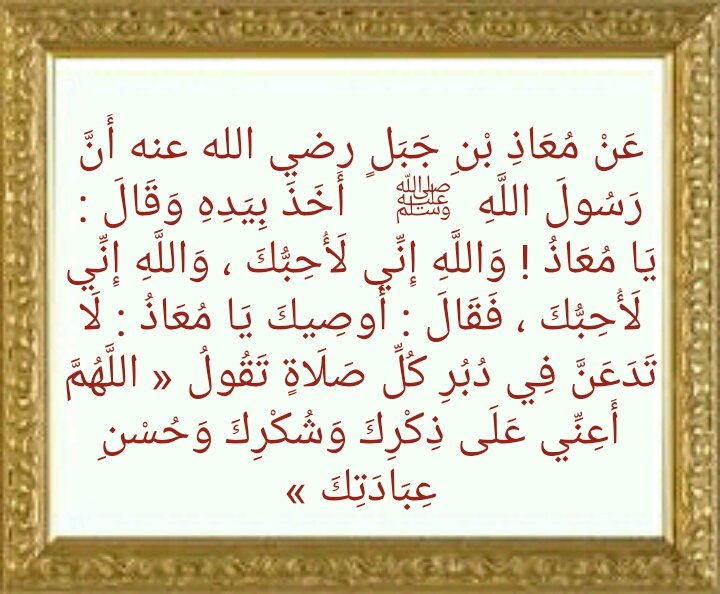 عَنْ مُعَاذِ بْنِ جَبَلٍ رضي الله عنه أَنَّ
رَسُولَ اللَّهِ ﷺ أَخَذَ بِيَدِهِ وَقَالَ :
يَا مُعَاذُ ! وَاللَّهِ إِنِّي لَأُحِبُّكَ ، وَاللَّهِ إِنِّي
لَأُحِبُّكَ ، فَقَالَ : أُوصِيكَ يَا مُعَاذُ : لَا
تَدَعَنَّ فِي دُبُرِ كُلِّ صَلَاةٍ تَقُولُ « اللَّهُمَّ
أَعِنِّي عَلَى ذِكْرِكَ وَشُكْرِكَ وَحُسْنِ
عِبَادَتِكَ »